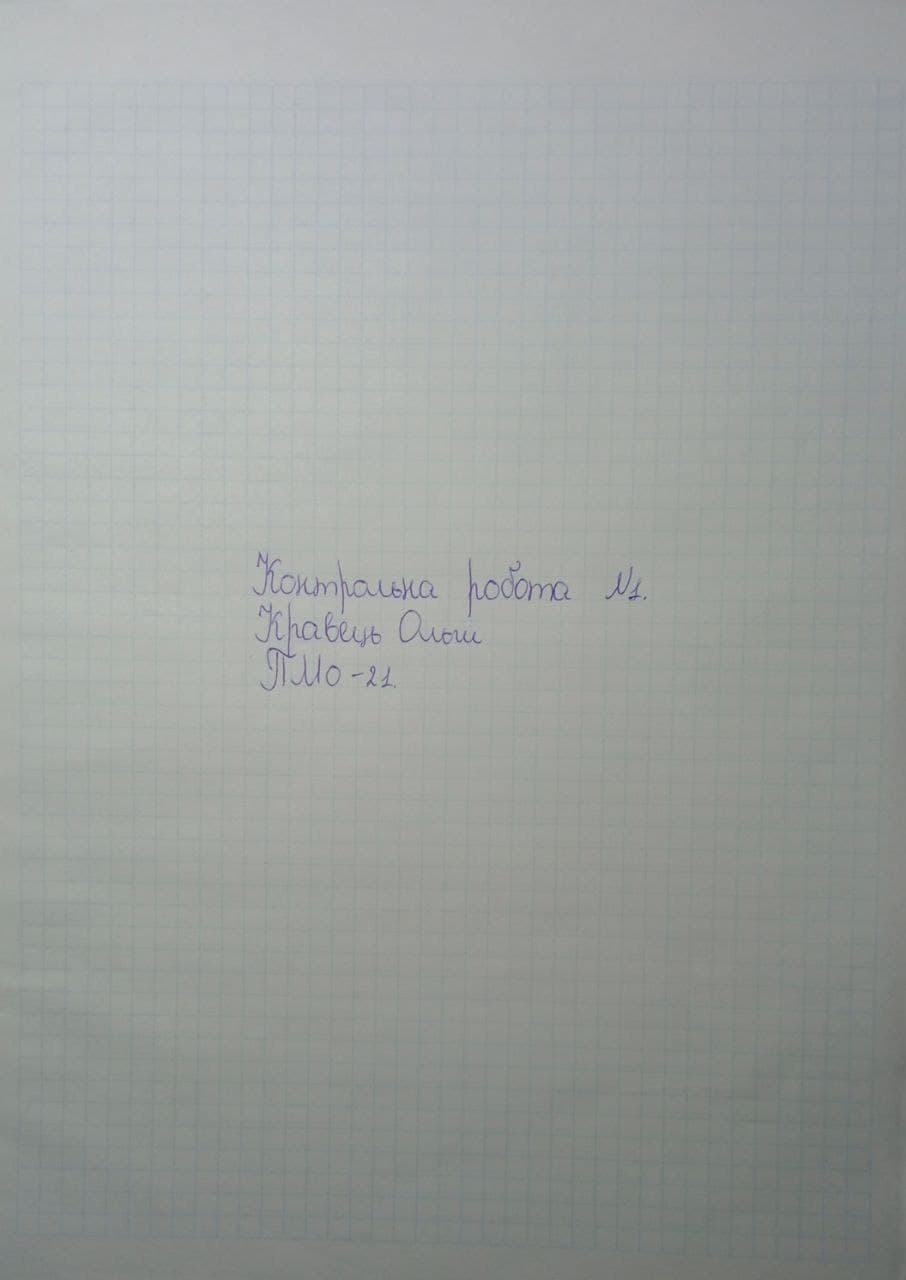 Контрольна робота №1.
Кравець Ольги
ПМо-21.